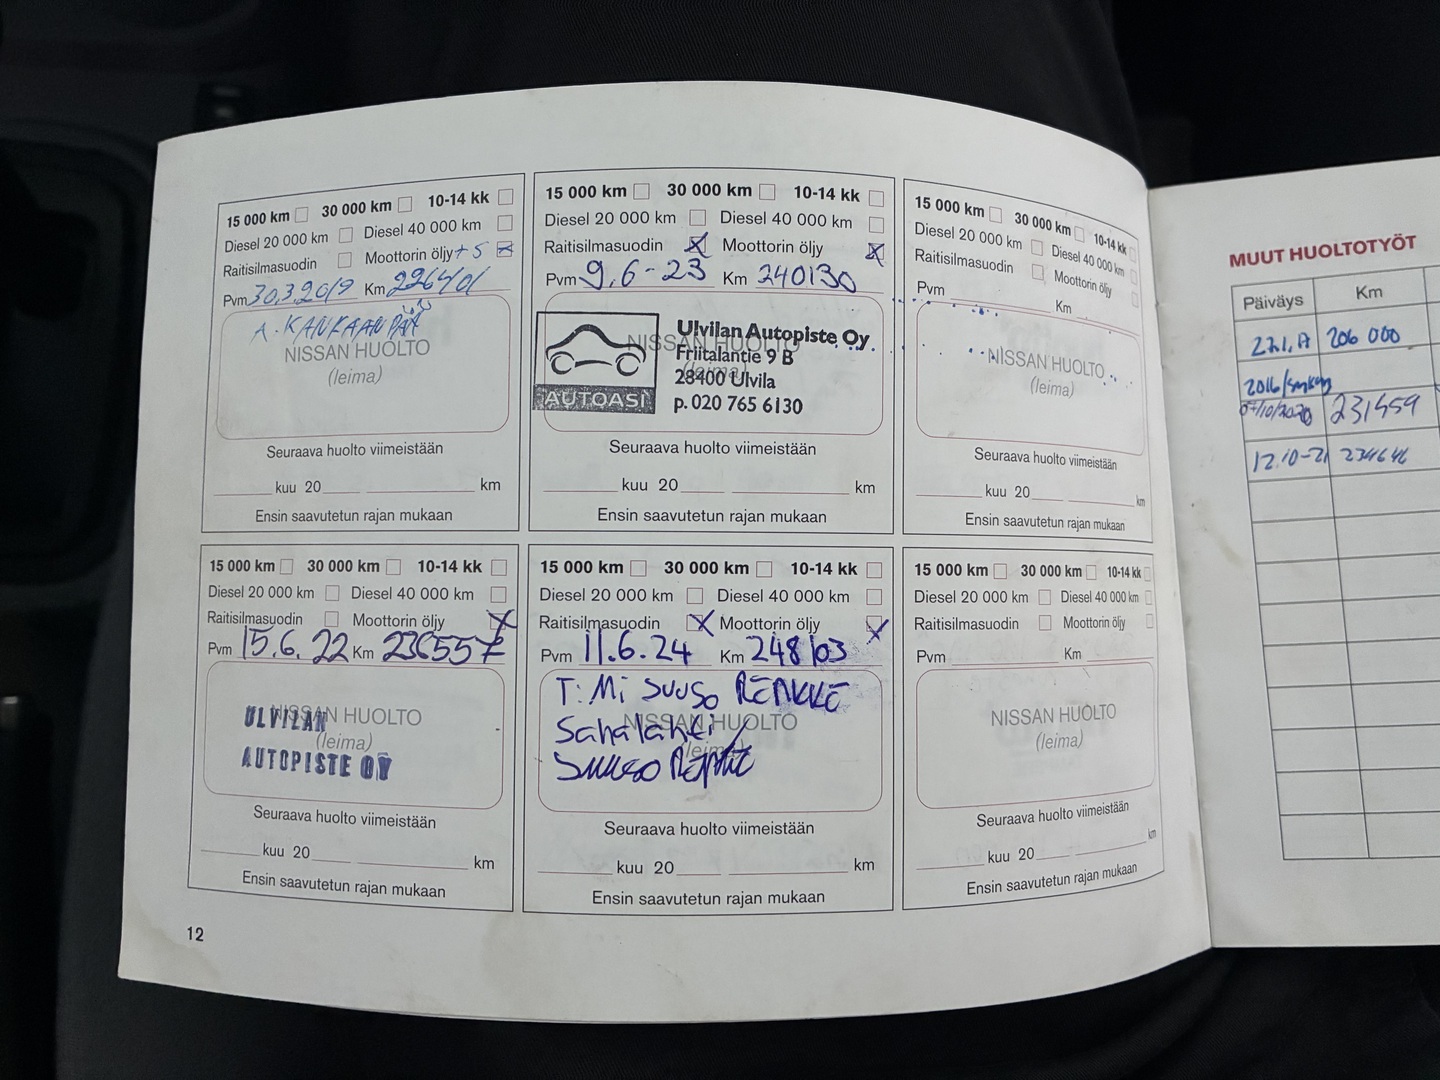 15 000 km 30 000 km 10-14 kk
Diesel 20 000 km Diesel 40 000 km
Raitisilmasuodin Moottorin öljy + S
Pvm 30.3.2019 Km 226401
A. KANKAANPÄÄ
NISSAN HUOLTO
(leima)
Seuraava huolto viimeistään
kuu 20 km
Ensin saavutetun rajan mukaan
15 000 km 30 000 km 10-14 kk
Diesel 20 000 km Diesel 40 000 km
Raitisilmasuodin X Moottorin öljy X
Pvm 9.6-23 Km 240130
NISSAN HUOLTO
(leima)
AUTOASI
Ulvilan Autopiste Oy
Friitalantie 9 B
28400 Ulvila
p. 020 765 6130
Seuraava huolto viimeistään
kuu 20 km
Ensin saavutetun rajan mukaan
15 000 km 30 000 km 10-14 kk
Diesel 20 000 km Diesel 40 000 km
Raitisilmasuodin Moottorin öljy
Pvm Km
NISSAN HUOLTO
(leima)
Seuraava huolto viimeistään
kuu 20 km
Ensin saavutetun rajan mukaan
15 000 km 30 000 km 10-14 kk
Diesel 20 000 km Diesel 40 000 km
Raitisilmasuodin Moottorin öljy X
Pvm 15.6.22 Km 236557
NISSAN HUOLTO
(leima)
ULVILAN
AUTOPISTE OY
Seuraava huolto viimeistään
kuu 20 km
Ensin saavutetun rajan mukaan
15 000 km 30 000 km 10-14 kk
Diesel 20 000 km Diesel 40 000 km
Raitisilmasuodin X Moottorin öljy X
Pvm 11.6.24 Km 248103
T:Mi SUUSO
Sahalahti
NISSAN HUOLTO
(leima)
Seuraava huolto viimeistään
kuu 20 km
Ensin saavutetun rajan mukaan
15 000 km 30 000 km 10-14 kk
Diesel 20 000 km Diesel 40 000 km
Raitisilmasuodin Moottorin öljy
Pvm Km
NISSAN HUOLTO
(leima)
Seuraava huolto viimeistään
kuu 20 km
Ensin saavutetun rajan mukaan
12
MUUT HUOLTOTYÖT
Päiväys Km
206 000
231559
12.10-21 234646